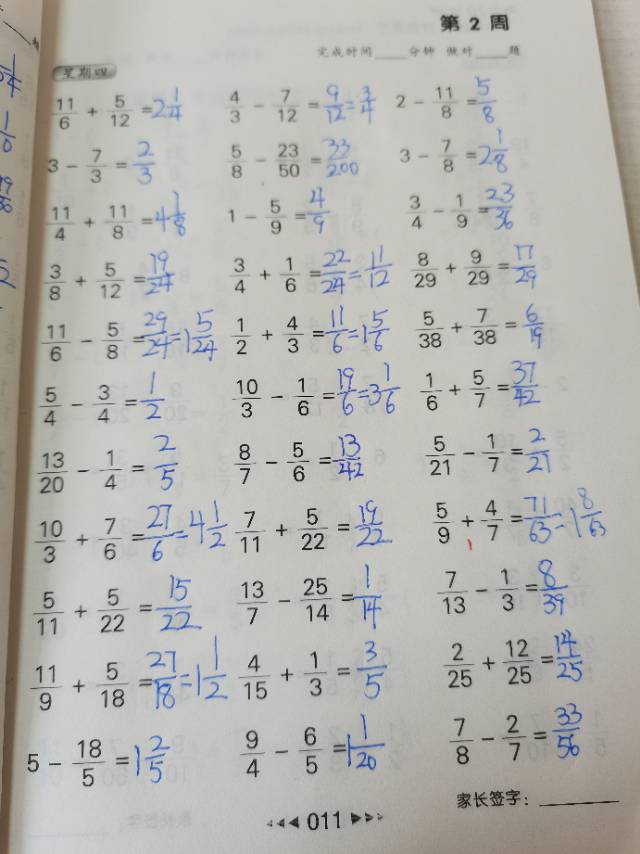 第 2 周
完成时间____分钟 做对____题
星期四
11/6 + 5/12 =2 1/4 4/3 − 7/12 =9/12=3/4 2 − 11/8 =5/8
3 − 7/3 =2/3 5/8 − 23/50 =33/200 3 − 7/8 =2 1/8
11/4 + 11/8 =4 1/8 1 − 5/9 =4/9 3/4 − 1/9 =23/36
3/8 + 5/12 =19/24 3/4 + 1/6 =22/24=11/12 8/29 + 9/29 =17/29
11/6 − 5/8 =29/24=1 5/24 1/2 + 4/3 =11/6=1 5/6 5/38 + 7/38 =6/19
5/4 − 3/4 =1/2 10/3 − 1/6 =19/6=3 1/6 1/6 + 5/7 =37/42
13/20 − 1/4 =2/5 8/7 − 5/6 =13/42 5/21 − 1/7 =2/21
10/3 + 7/6 =27/6=4 1/2 7/11 + 5/22 =19/22 5/9 + 4/7 =71/63=1 8/63
5/11 + 5/22 =15/22 13/7 − 25/14 =1/14 7/13 − 1/3 =8/39
11/9 + 5/18 =27/18=1 1/2 4/15 + 1/3 =3/5 2/25 + 12/25 =14/25
5 − 18/5 =1 2/5 9/4 − 6/5 =1 1/20 7/8 − 2/7 =33/56
家长签字：________
011